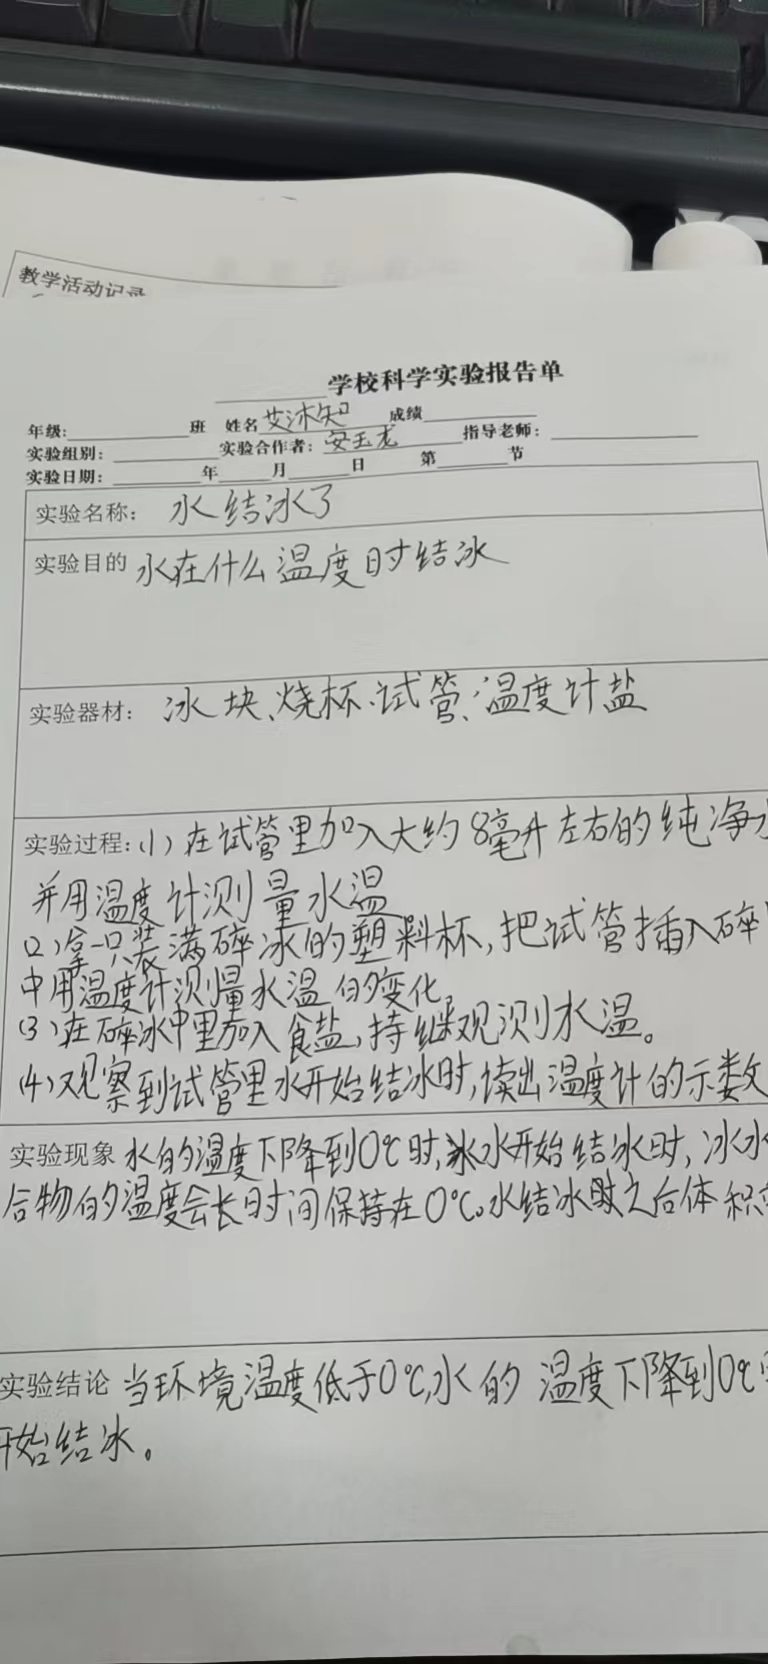 教学活动记录
学校科学实验报告单
年级: 班 姓名 艾沐知 成绩
实验组别: 实验合作者: 安玉龙 指导老师:
实验日期: 年 月 日 第 节
实验名称: 水结冰了
实验目的 水在什么温度时结冰
实验器材: 冰块、烧杯、试管、温度计盐
实验过程:(1)在试管里加入大约8毫升左右的纯净
并用温度计测量水温
(2)拿一只装满碎冰的塑料杯,把试管插入碎
中用温度计测量水温的变化
(3)在碎冰中里加入食盐,持继观测水温。
(4)观察到试管里水开始结冰时,读出温度计的示数
实验现象 水的温度下降到0℃时,水开始结冰时,冰水
合物的温度会长时间保持在0℃。水结冰之后体积
实验结论 当环境温度低于0℃,水的温度下降到0℃
开始结冰。